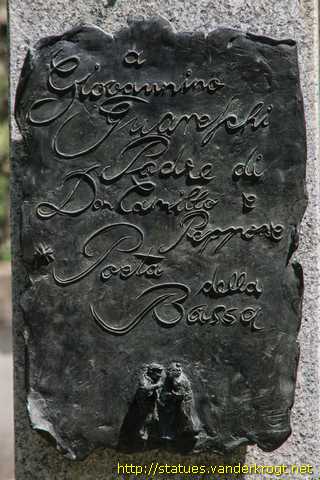 a
Giovannino
Guareschi
Padre di
Don Camillo e
Peppone
Poeta
della
Bassa
http://statues.vanderkrogt.net